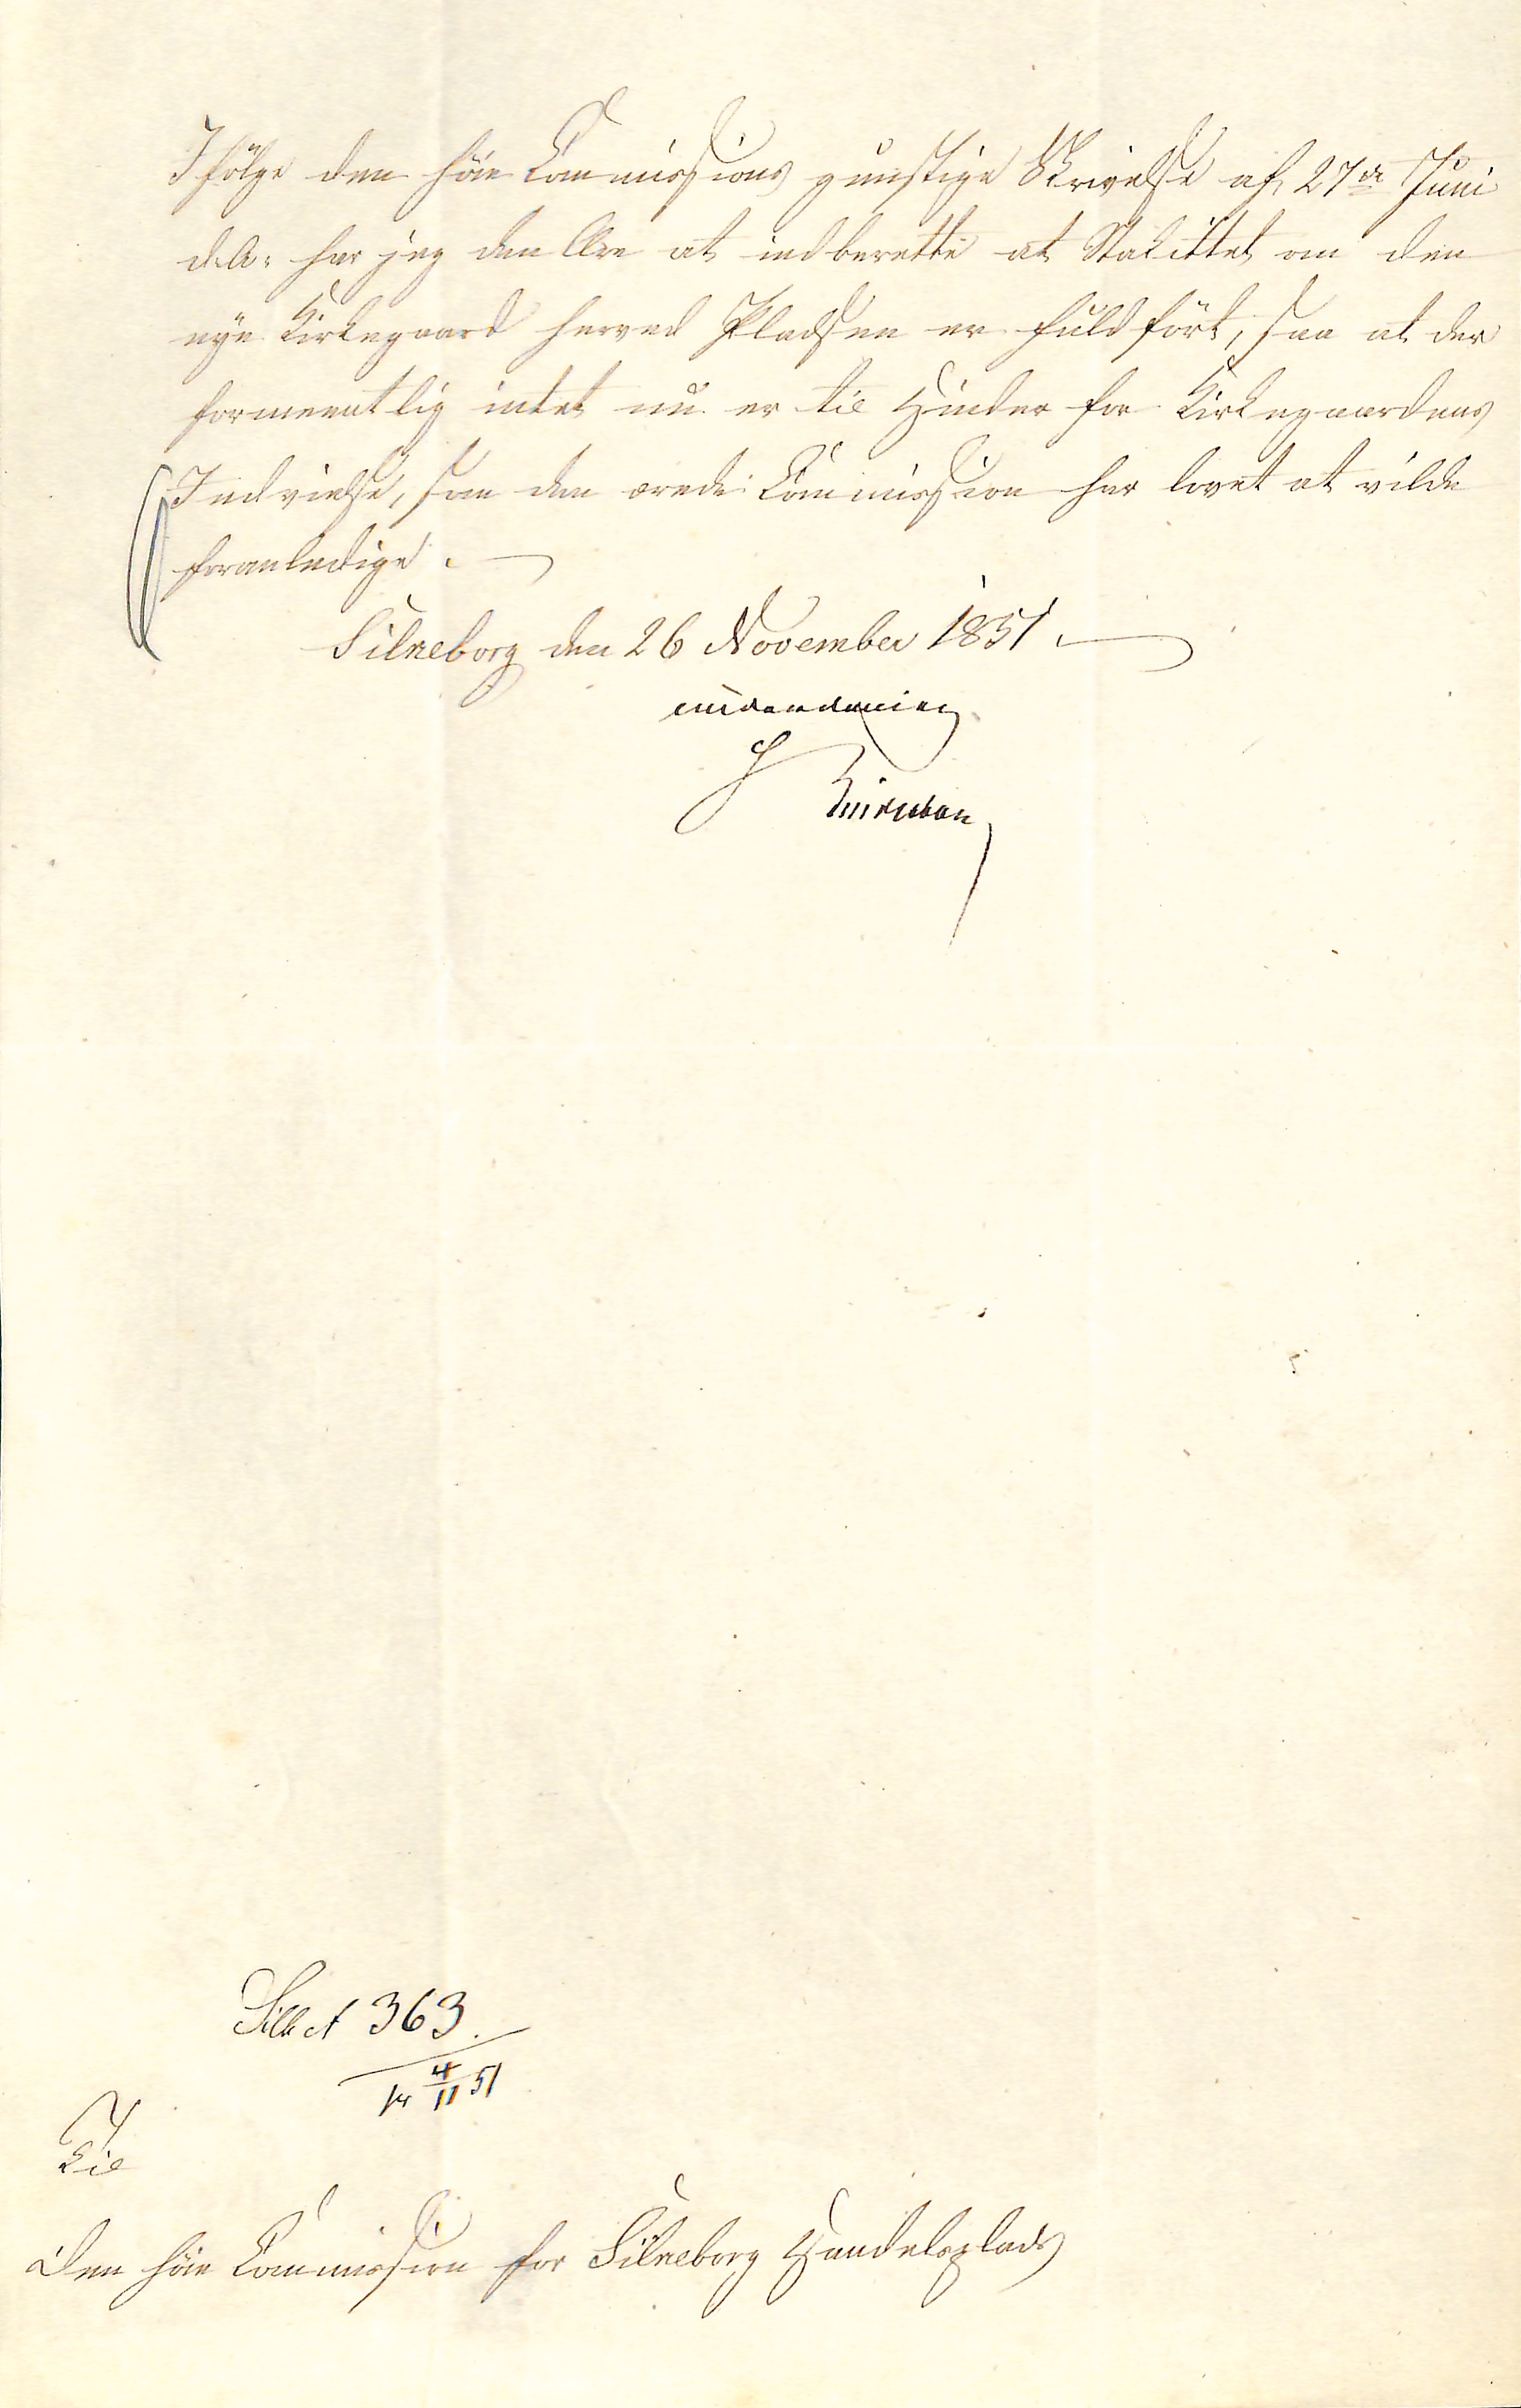 Ifölge den höie Commissions gunstige Skrivelse af 27de Juni
d. A. har jeg den Ære at indberette at Stakittet om den
nye Kirkegaard herved Pladsen er fuldfört, saa at der
formeentlig intet nu er til Hinder for Kirkegaardens
Indvielse, som den ærede Commission har lovet at vilde
foranledige.
Silkeborg den 26 November 1851.
underdanig
Silk A 363.
51
Til
Den höie Commission for Silkeborg Handelsplads